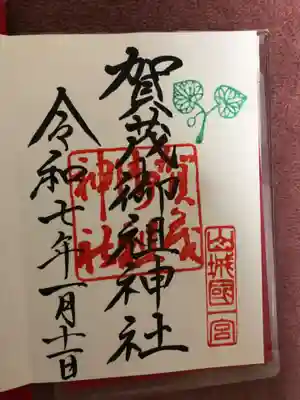 山城國一宮
賀茂御祖神社
賀茂御祖神社
令和七年一月十一日